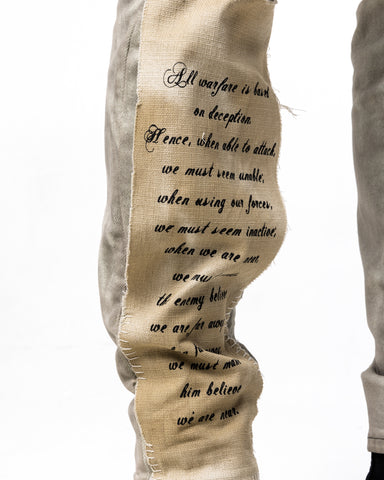 All warfare is based
on deception.
Hence, when able to attack,
we must seem unable,
when using our forces,
we must seem inactive,
when we are near,
we must
th enemy believe
we are far away
we must make
him believe
we are near.